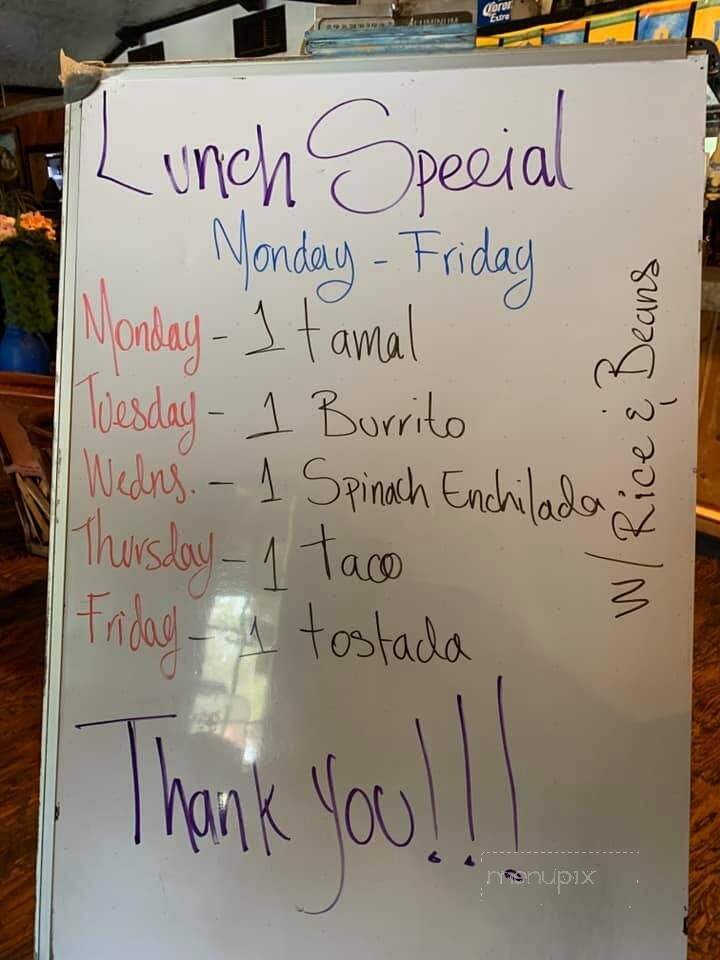 Corona
Extra
Lunch Special
Monday - Friday
Monday - 1 tamal
Tuesday - 1 Burrito
Wedns. - 1 Spinach Enchilada
Thursday - 1 taco
Friday - 1 tostada
W/ Rice & Beans
Thank you!!!
menupix